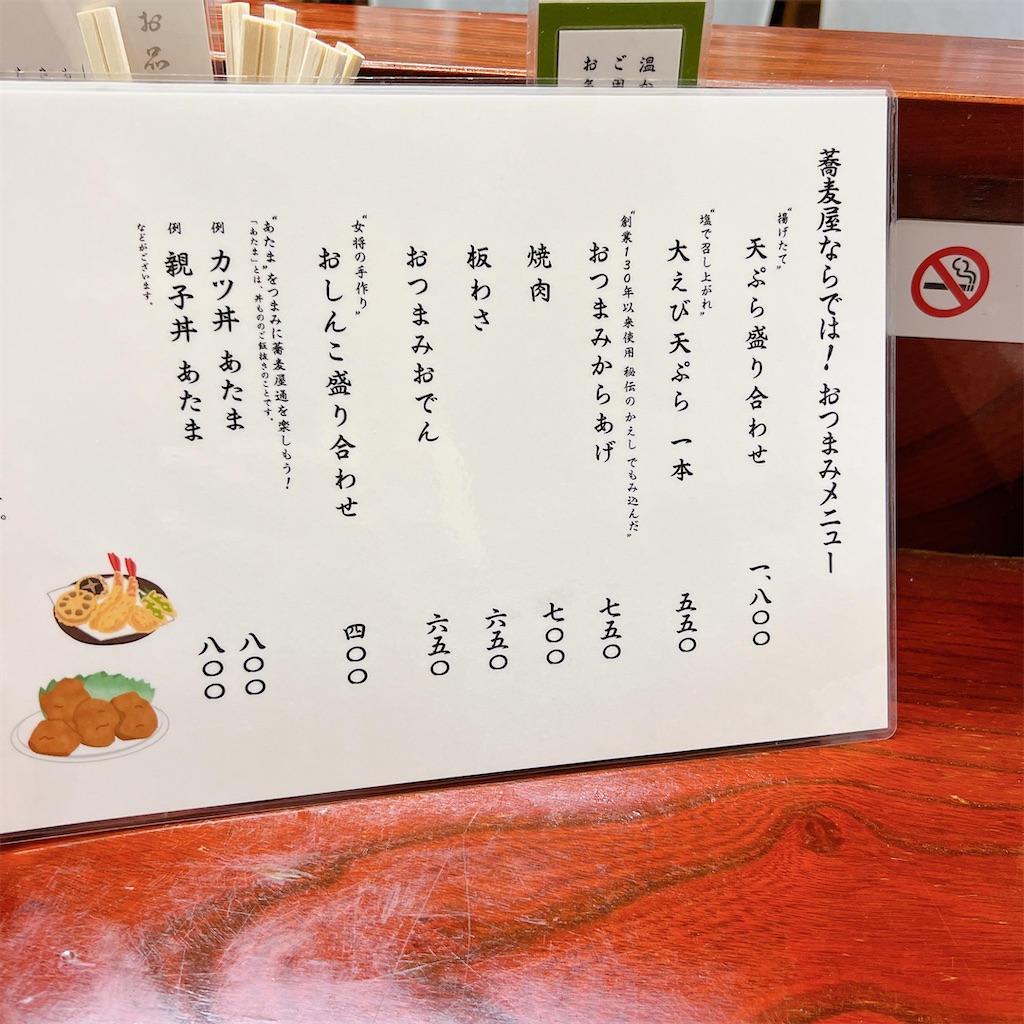 蕎麦屋ならでは！おつまみメニュー
"揚げたて"
天ぷら盛り合わせ 一、八〇〇
"塩で召し上がれ"
大えび天ぷら 一本 五五〇
"創業130年以来使用 秘伝のかえし でもみ込んだ"
おつまみからあげ 七五〇
焼肉 七〇〇
板わさ 六五〇
おつまみおでん 六五〇
"女将の手作り"
おしんこ盛り合わせ 四〇〇
"あたま"をつまみに蕎麦屋通を楽しもう！
「あたま」とは、丼もののご飯抜きのことです。
例 カツ丼 あたま 八〇〇
例 親子丼 あたま 八〇〇
などがございます。
お品
温か
ご用